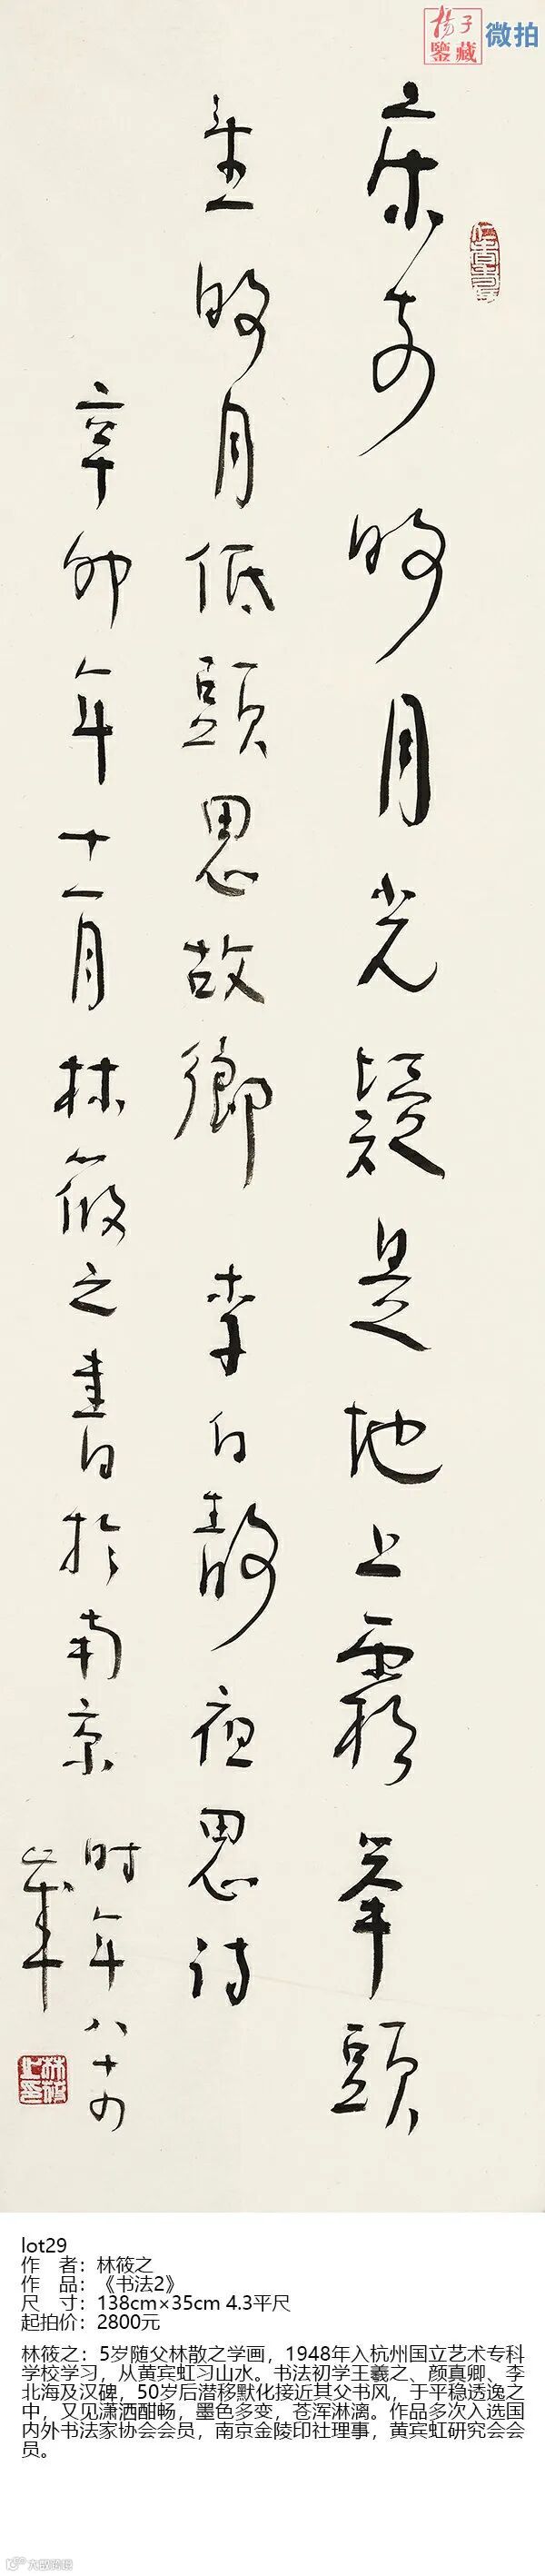 揚子
鑒藏
微拍
床前明月光疑是地上霜舉頭
望明月低頭思故鄉 李白靜夜思詩
辛卯年十一月林筱之書於南京 时年八十四
歲
林筱之印
lot29
作 者：林筱之
作 品：《书法2》
尺 寸：138cm×35cm 4.3平尺
起拍价：2800元
林筱之：5岁随父林散之学画，1948年入杭州国立艺术专科
学校学习，从黄宾虹习山水。书法初学王羲之、颜真卿、李
北海及汉碑，50岁后潜移默化接近其父书风，于平稳透逸之
中，又见潇洒酣畅，墨色多变，苍浑淋漓。作品多次入选国
内外书法家协会会员，南京金陵印社理事，黄宾虹研究会会
员。